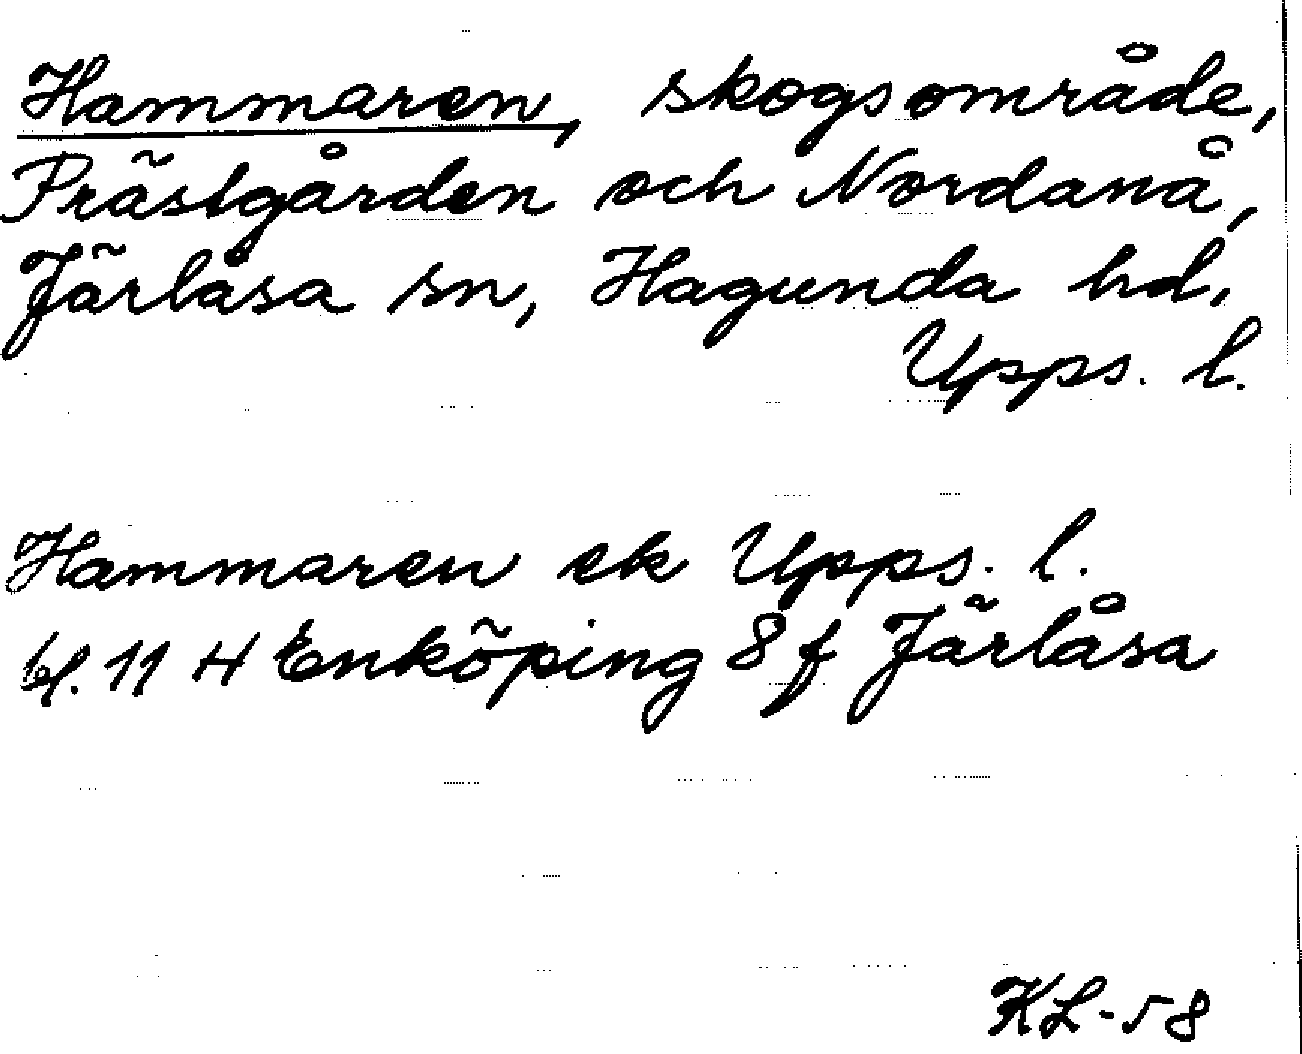 Hammaren, skogsområde,
Prästgården och Nordanå,
Järlåsa sn, Hagunda hd,
Upps. l.
Hammaren ek Upps. l.
bl. 11 H Enköping 8 f Järlåsa
KL-58